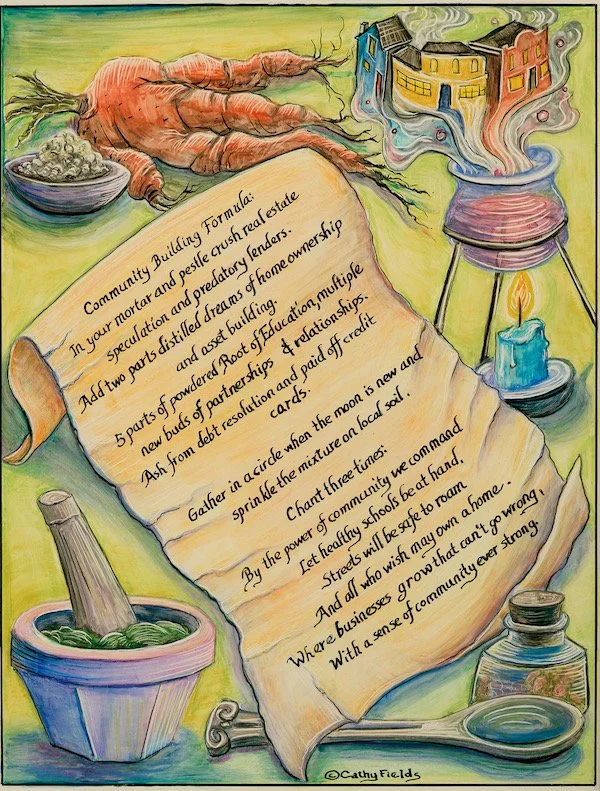 Community Building Formula:
In your mortar and pestle crush real estate
speculation and predatory lenders.
Add two parts distilled dreams of home ownership
and asset building.
5 parts of powdered Root of Education, multiple
new buds of partnerships & relationships.
Ash from debt resolution and paid off credit
cards.
Gather in a circle when the moon is new and
sprinkle the mixture on local soil.
Chant three times:
By the power of community we command
Let healthy schools be at hand,
Streets will be safe to roam
And all who wish may own a home.
Where businesses grow that can't go wrong,
With a sense of community ever strong.
©Cathy Fields